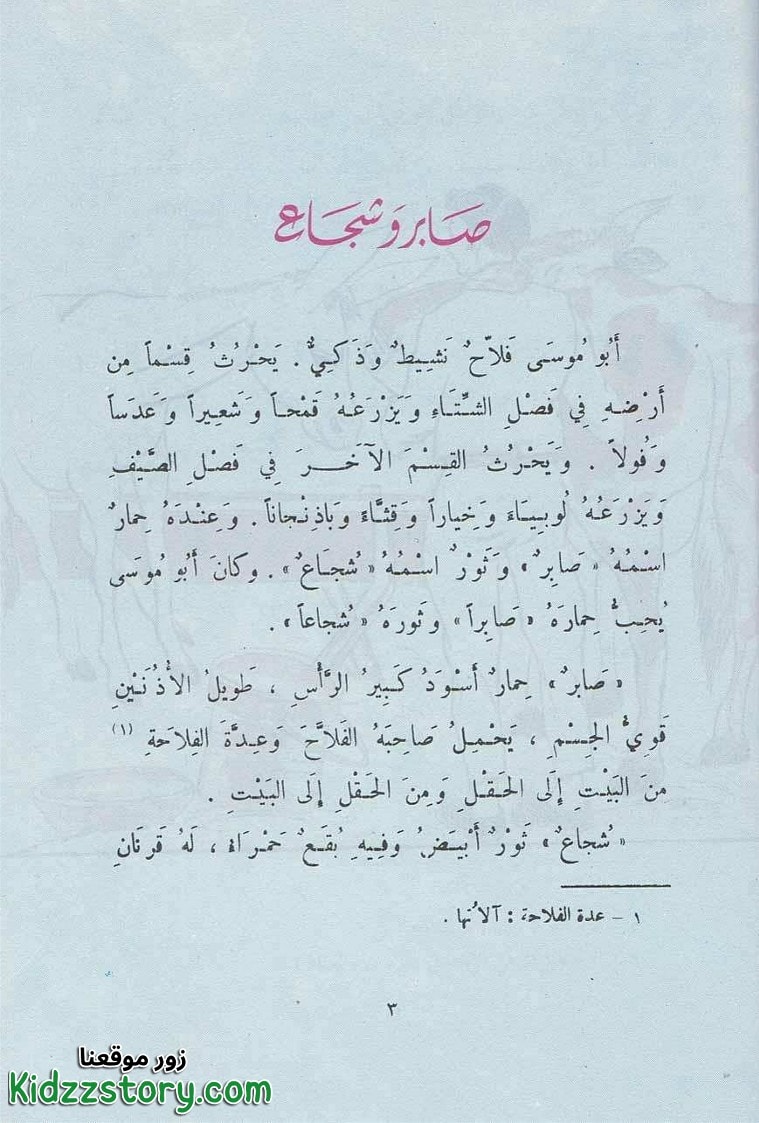 صَابر وَشجَاع
أَبُو مُوسَى فَلاَّحٌ نَشِيطٌ وَذَكِيٌّ . يَحْرُثُ قِسْماً مِن
أَرْضِهِ فِي فَصْلِ الشِّتَاءِ وَيَزْرَعُهُ قَمْحاً وَشَعِيراً وَعَدَساً
وَفُولاً . وَيَحْرُثُ القِسْمَ الآخَرَ فِي فَصْلِ الصَّيْفِ
وَيَزْرَعُهُ لُوبِيَاءَ وَخِياراً وَقِثَّاءً وَبَاذِنْجاناً . وَعِنْدَهُ حِمارٌ
اسْمُهُ « صَابِرٌ » وَثَوْرٌ اسْمُهُ « شُجَاعٌ » . وكانَ أَبُو مُوسَى
يُحِبُّ حِمارَهُ « صَابِراً » وَثَورَهُ « شُجاعاً » .
« صَابرٌ » حِمارٌ أَسْوَدُ كَبِيرُ الرَّأْسِ ، طَوِيلُ الأُذُنَيْنِ
قَوِيُّ الجِسْمِ ، يَحْمِلُ صَاحِبَهُ الفَلاَّحَ وَعِدَّةَ الفِلاحَةِ (١)
مِنَ البَيْتِ إِلَى الحَقْلِ وَمِنَ الحَقْلِ إِلَى البَيْتِ .
« شُجاعٌ » ثَوْرٌ أَبْيَضُ وَفِيهِ بُقَعٌ حَمْرَاءُ ، لَهُ قَرْنَانِ
١ - عدة الفلاحة : آلاتُها .
٣
زور موقعنا
Kidzzstory.com